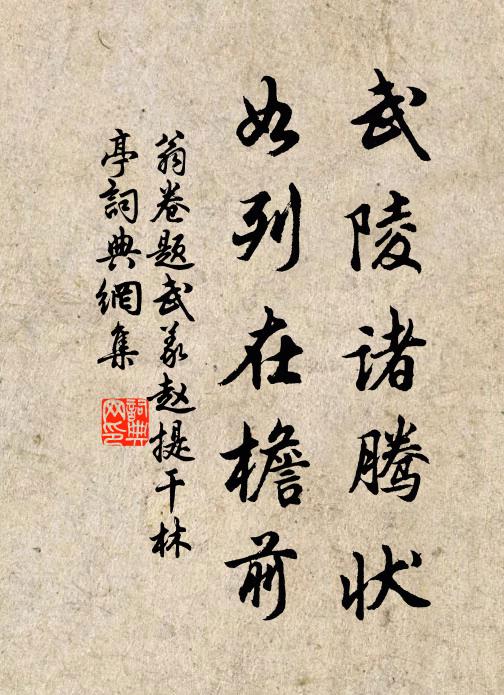 武陵诸腾状
如列在檐前
翁卷题武义赵提干林
亭詞典網集
詞典
网印